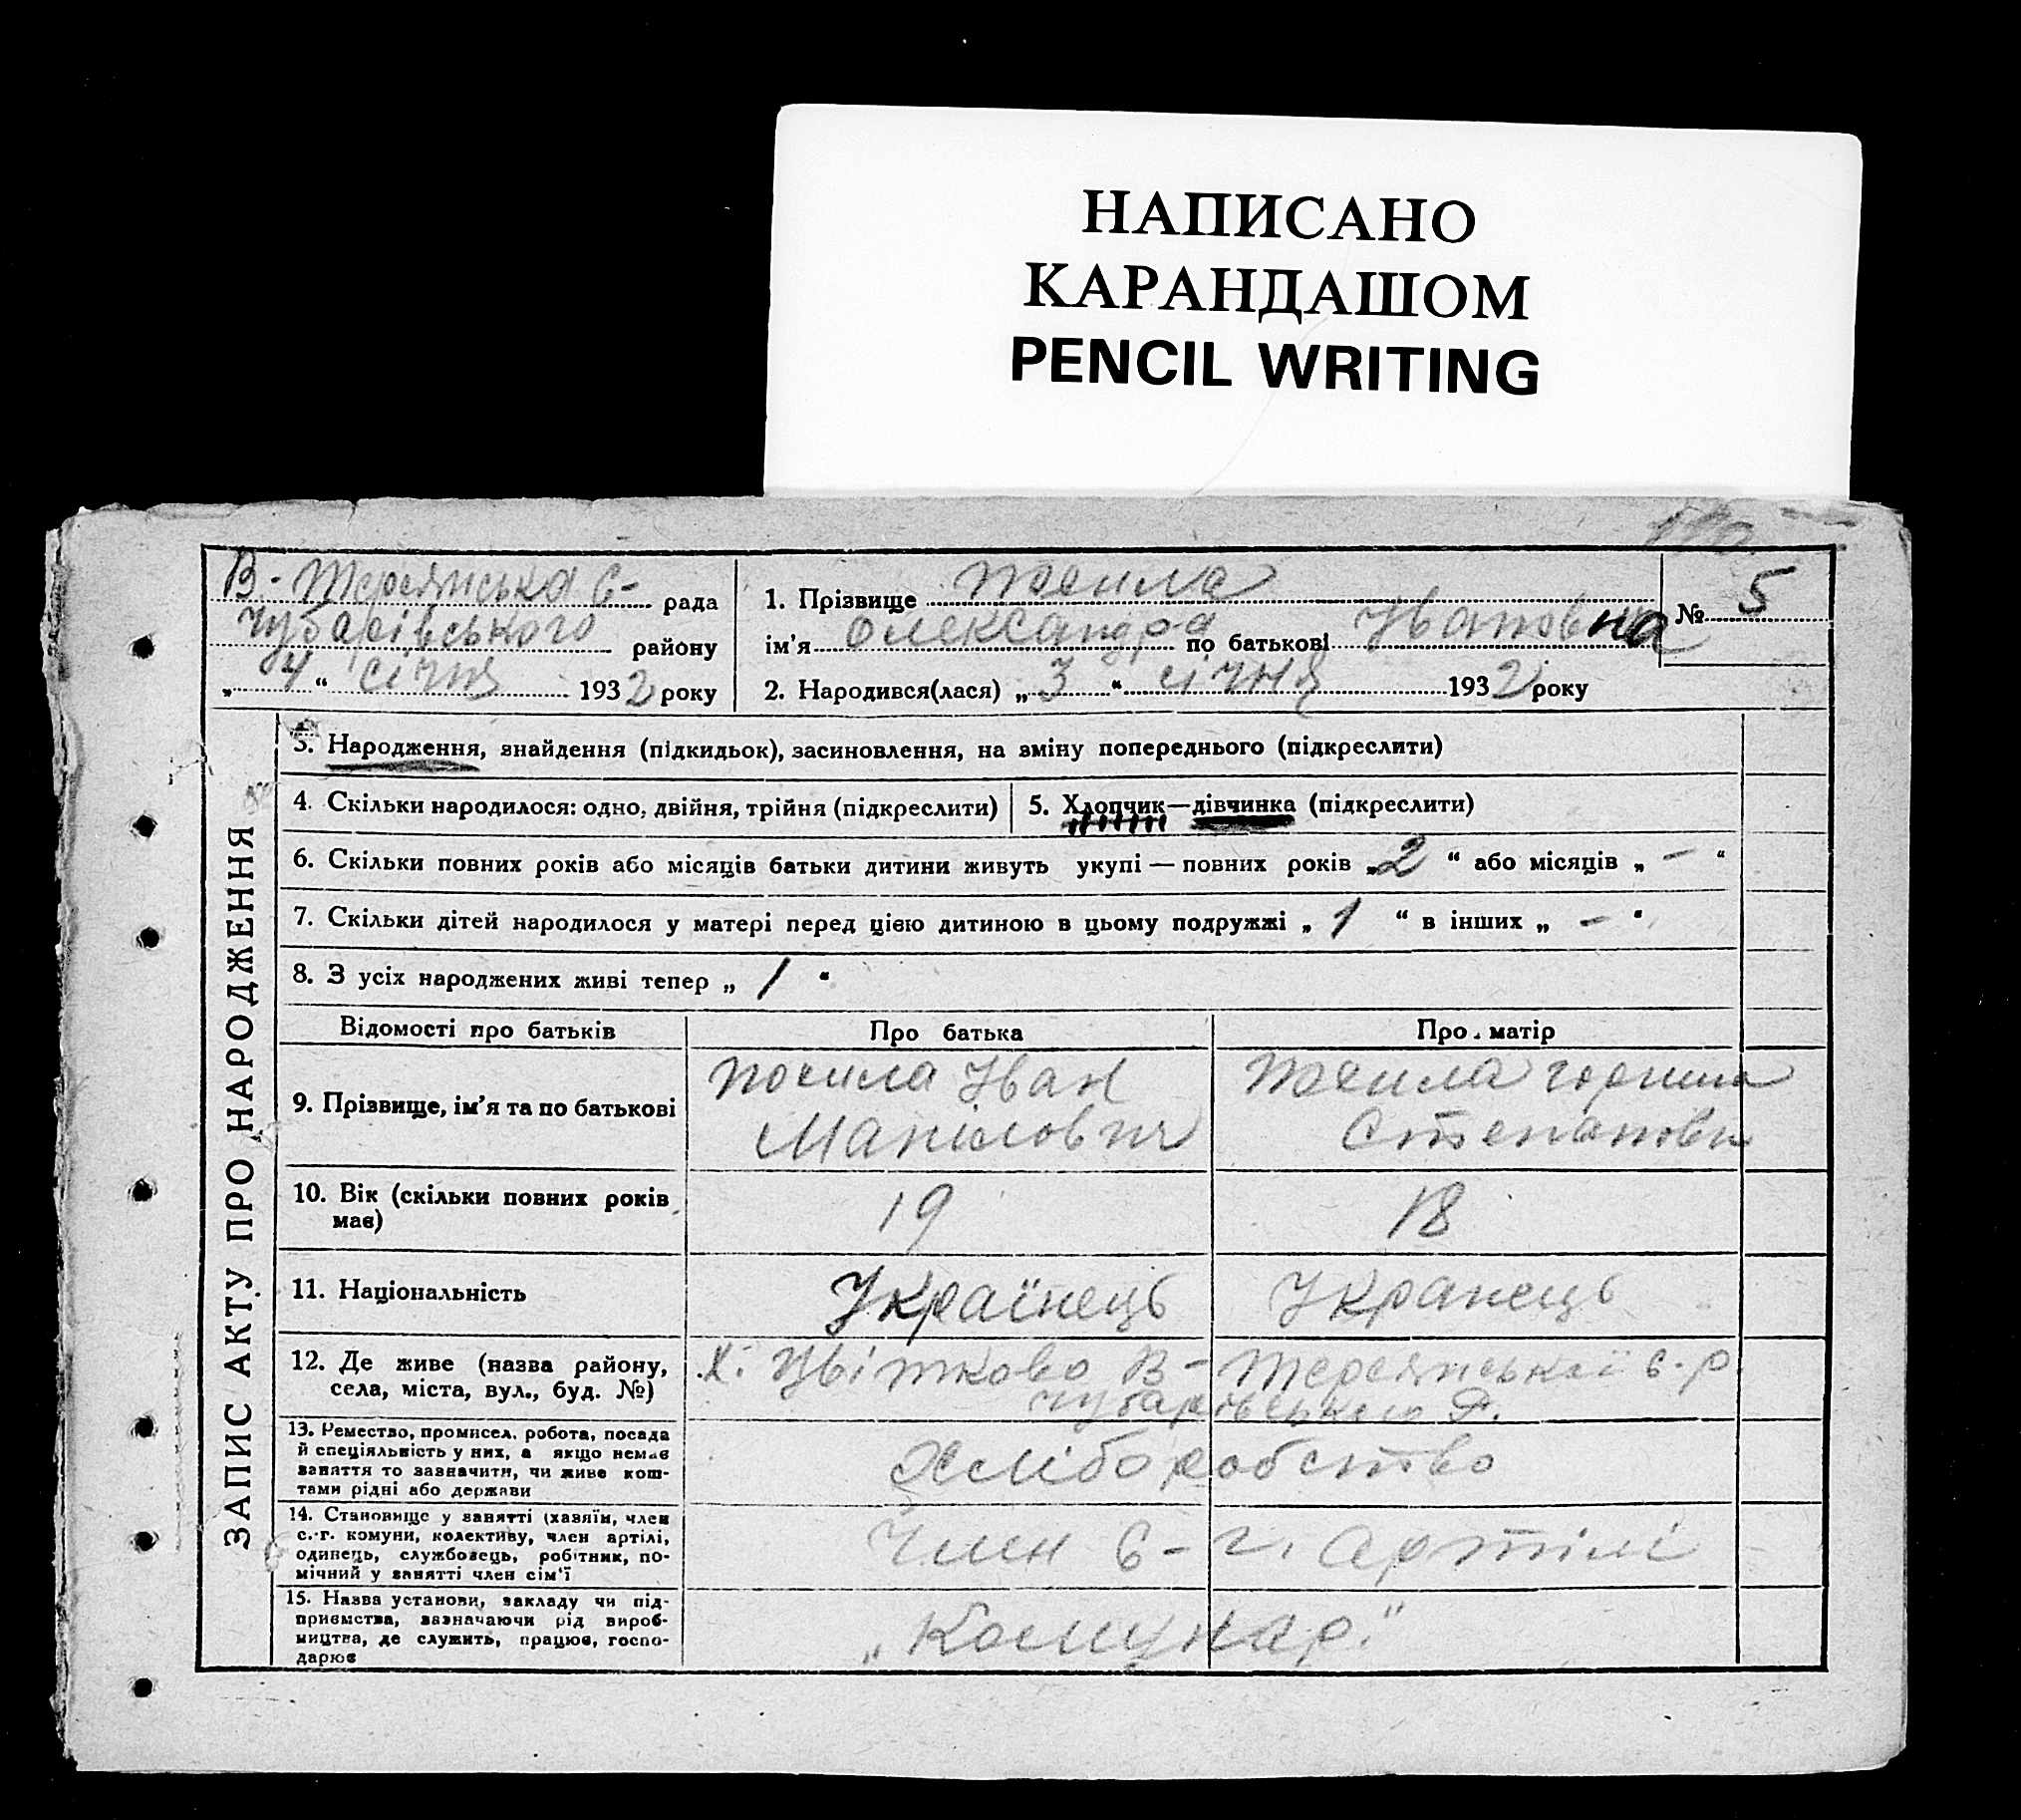 НАПИСАНО
КАРАНДАШОМ
PENCIL WRITING
В.- Терсянська С- рада
Чубарівського району
„ 4 “ січня 1932 року
1. Прізвище
ім'я Олександра по батькові Івановна
№ 5
2. Народився(лася) „ 3 “ січня 1932 року
ЗАПИС АКТУ ПРО НАРОДЖЕННЯ
3. Народження, знайдення (підкидьок), засиновлення, на зміну попереднього (підкреслити)
4. Скільки народилося: одно, двійня, трійня (підкреслити) 5. Хлопчик—дівчинка (підкреслити)
6. Скільки повних років або місяців батьки дитини живуть укупі — повних років „ 2 “ або місяців „ — “
7. Скільки дітей народилося у матері перед цією дитиною в цьому подружжі „ 1 “ в інших „ — “
8. З усіх народжених живі тепер „ 1 “
Відомості про батьків Про батька Про матір
9. Прізвище, ім'я та по батькові
Іван
10. Вік (скільки повних років має) 19 18
11. Національність Українець Укранець
12. Де живе (назва району, села, міста, вул., буд. №)
Х. Цвітково В- Терсянської с-р
Чубарівського р.
13. Ремество, промисел, робота, посада
й спеціяльність у них, а якщо немає
заняття то зазначити, чи живе кош-
тами рідні або держави
Хліборобство
14. Становище у занятті (хазяїн, член
с.-г. комуни, колективу, член артілі,
одинець, службовець, робітник, по-
мічний у занятті член сім'ї
Член с-г. артілі
15. Назва установи, закладу чи під-
приємства, зазначаючи рід вироб-
ництва, де служить, працює, госпо-
дарює
„Комунар."